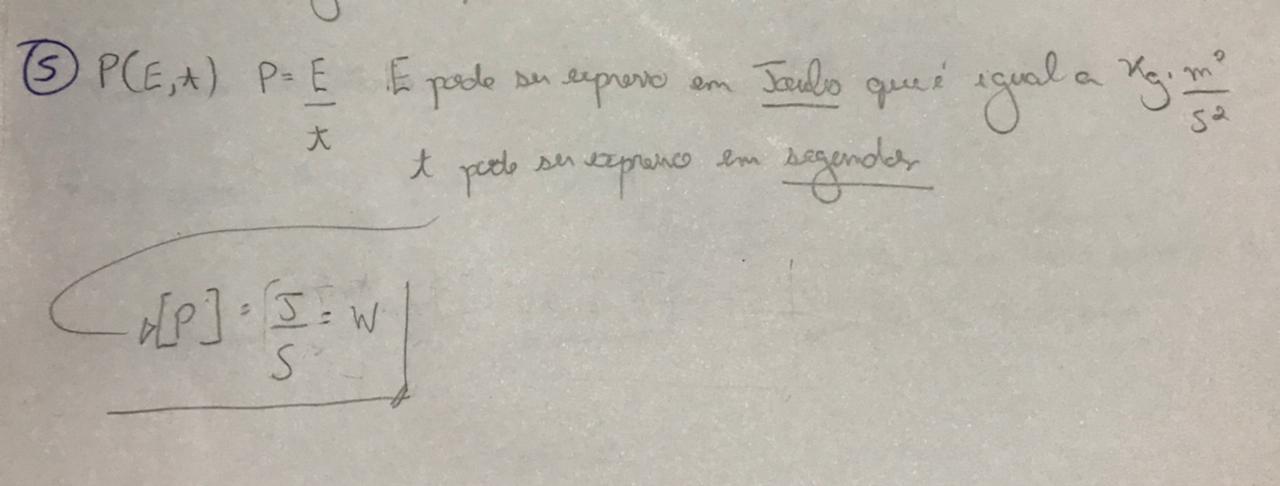 ⑤ P(E,t) P= E/t E pode ser expresso em Joule que é igual a Kg. m²/s²
t pode ser expresso em segundos
[P] = J/S = W